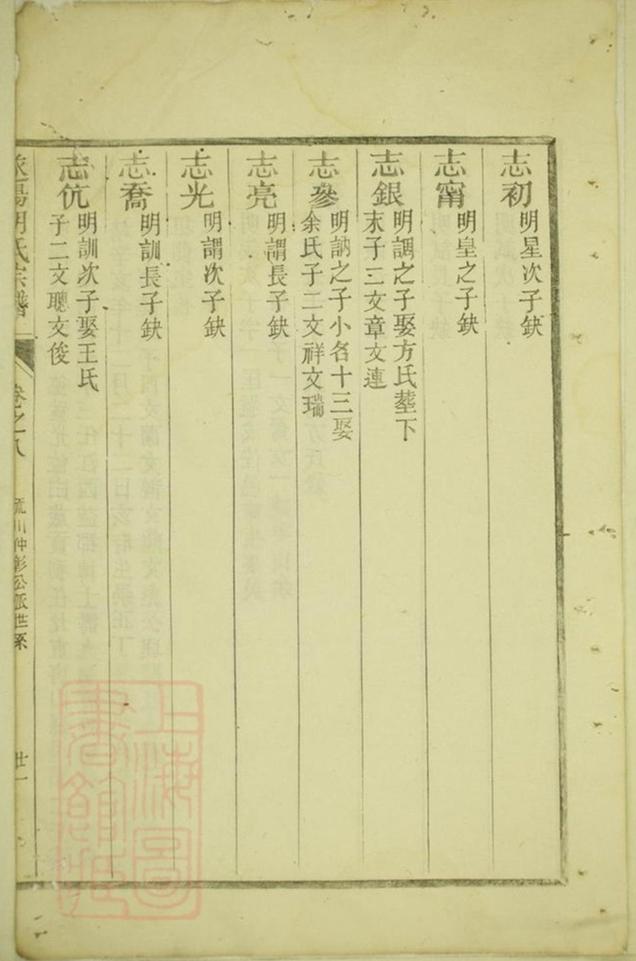 志初 明星次子缺
志甯 明皇之子缺
志銀 明調之子娶方氏塟下
末子三文章文連
志參 明訥之子小名十三娶
余氏子二文祥文瑞
志亮 明謂長子缺
志光 明謂次子缺
志喬 明訓長子缺
志伉 明訓次子娶王氏
子二文聰文俊
明氏宗譜
卷之八
川仲彰公派世系
廿一
上海圖書館藏